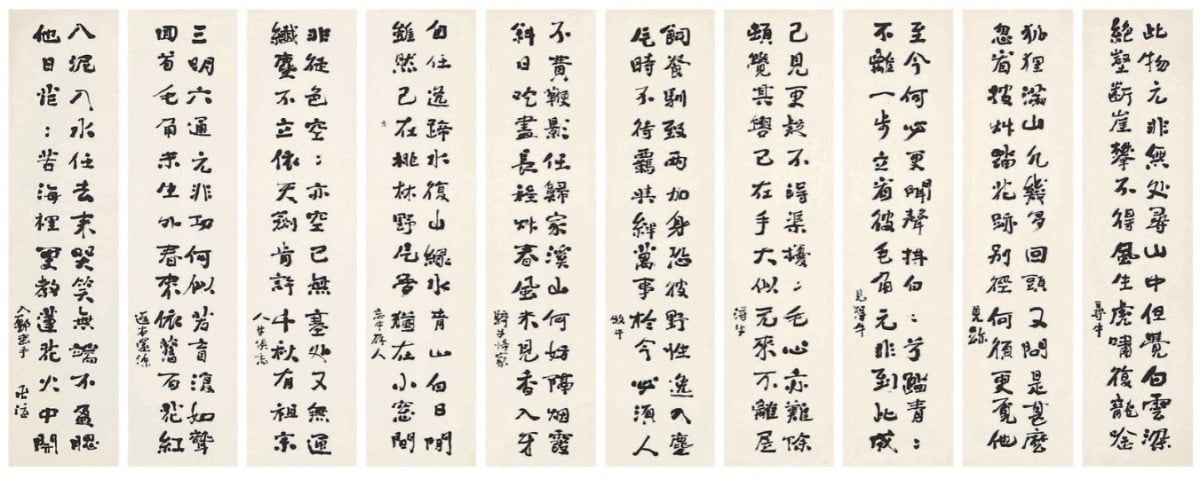 此物元非無处尋山中但覺白雲深
絶壑斷崖攀不得風生虎嘯復龍唫
尋牛
狐狸滿山凡幾多回頭又問是甚麼
忽看披艸踏花跡别徑何須更覓他
見跡
至今何必更聞聲拱白:兮踏青:
不離一步立看彼毛角元非到此成
見得牛
己見更疑不得渠擾:毛心亦難除
頓覺其轡已在手大似元來不離居
得牛
飼養馴致兩加身恐彼野性逸入塵
片時不待羈與絆萬事於今必須人
牧牛
不費鞭影任歸家溪山何妨隔烟霞
斜日吃盡長程艸春風未見香入牙
騎牛歸家
自任逸蹄水復山綠水青山白日閒
雖然已在桃林野片雲猶在小窓間
忘牛存人
非徒色空:亦空已無塞处又無通
纖塵不立依天劍肯許千秋有祖宗
人牛俱忘
三明六通元非功何似若盲復如聾
回首毛角未生外春來依舊百花紅
返本還源
入泥入水任去来哭笑無端不盈腮
他日茫:苦海裡更教蓮花火中開
入鄽垂手